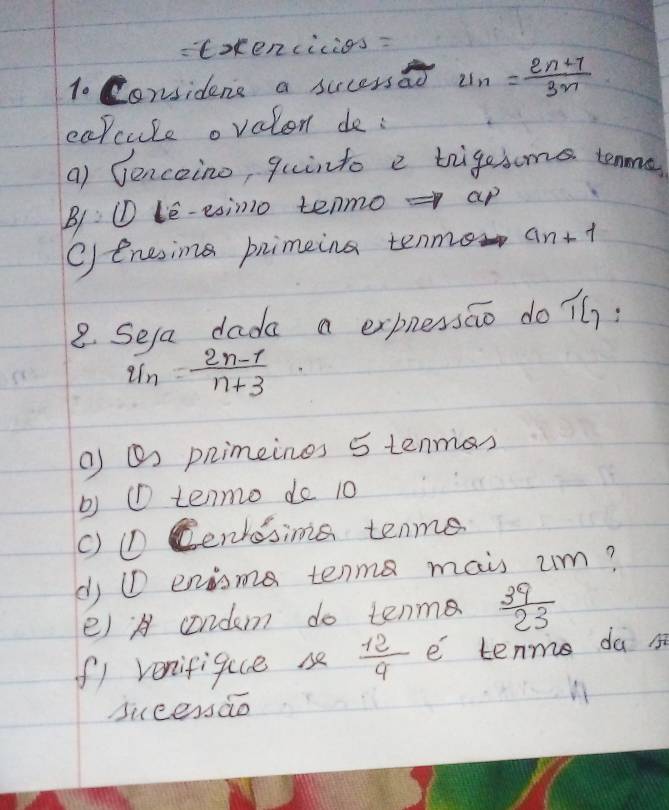 = Exercicios =
1. Considere a sucessão Un = 2n+1/3n
calcule o valor de:
a) Terceiro, quinto e trigesimo termo.
B) O Pê-esimo termo ⇒ ap
C) Enesimo primeiro termo → an+1
2. Seja dada a expressão do TG:
Un = 2n-1/n+3.
a) Os primeiros 5 termos
b) O termo de 10
c) O Centésimo termo
d) O enismo termo mais um?
e) A ordem do termo 39/23
f) verifique se 12/9 é termo da
sucessão